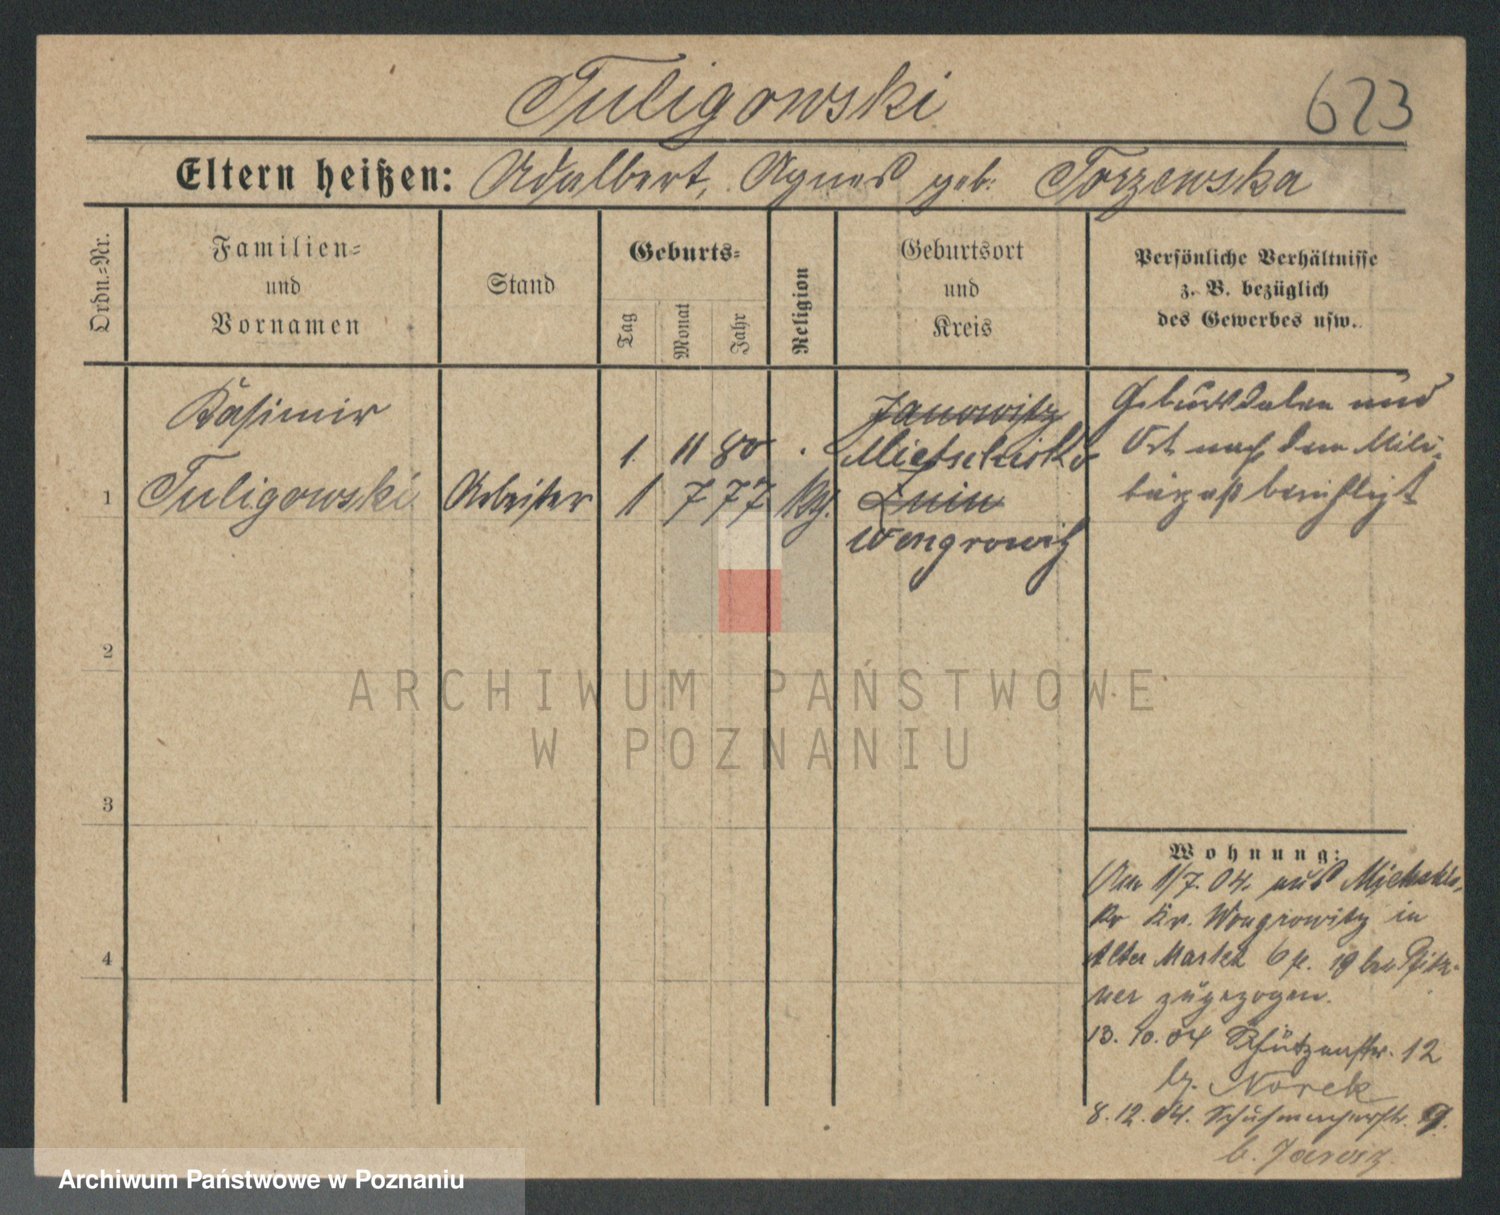 Tuligowski 623
Eltern heißen: Adalbert, Agnes geb. Torzewska
Ordn.-Nr.
Familien-
und
Vornamen
Stand
Geburts-
Tag
Monat
Jahr
Religion
Geburtsort
und
Kreis
Persönliche Verhältnisse
z. B. bezüglich
des Gewerbes usw.
1
Kasimir
Tuligowski
Arbeiter
1. 11 80
1 7 77
kth.
Janowitz
Mietschisko
Znin
Wongrowitz
Geburtsdaten und
Ort nach dem Mili-
tärpaß berichtigt
2
3
4
Wohnung:
Am 1/7. 04. aus
Kr. Wongrowitz in
Alter Markt 6 19 bei
ner zugezogen.
13. 10. 04 Schützenstr. 12
bz. Norek
8. 12. 04. Schuhmacherstr. 9.
b.
ARCHIWUM PAŃSTWOWE
W POZNANIU
Archiwum Państwowe w Poznaniu